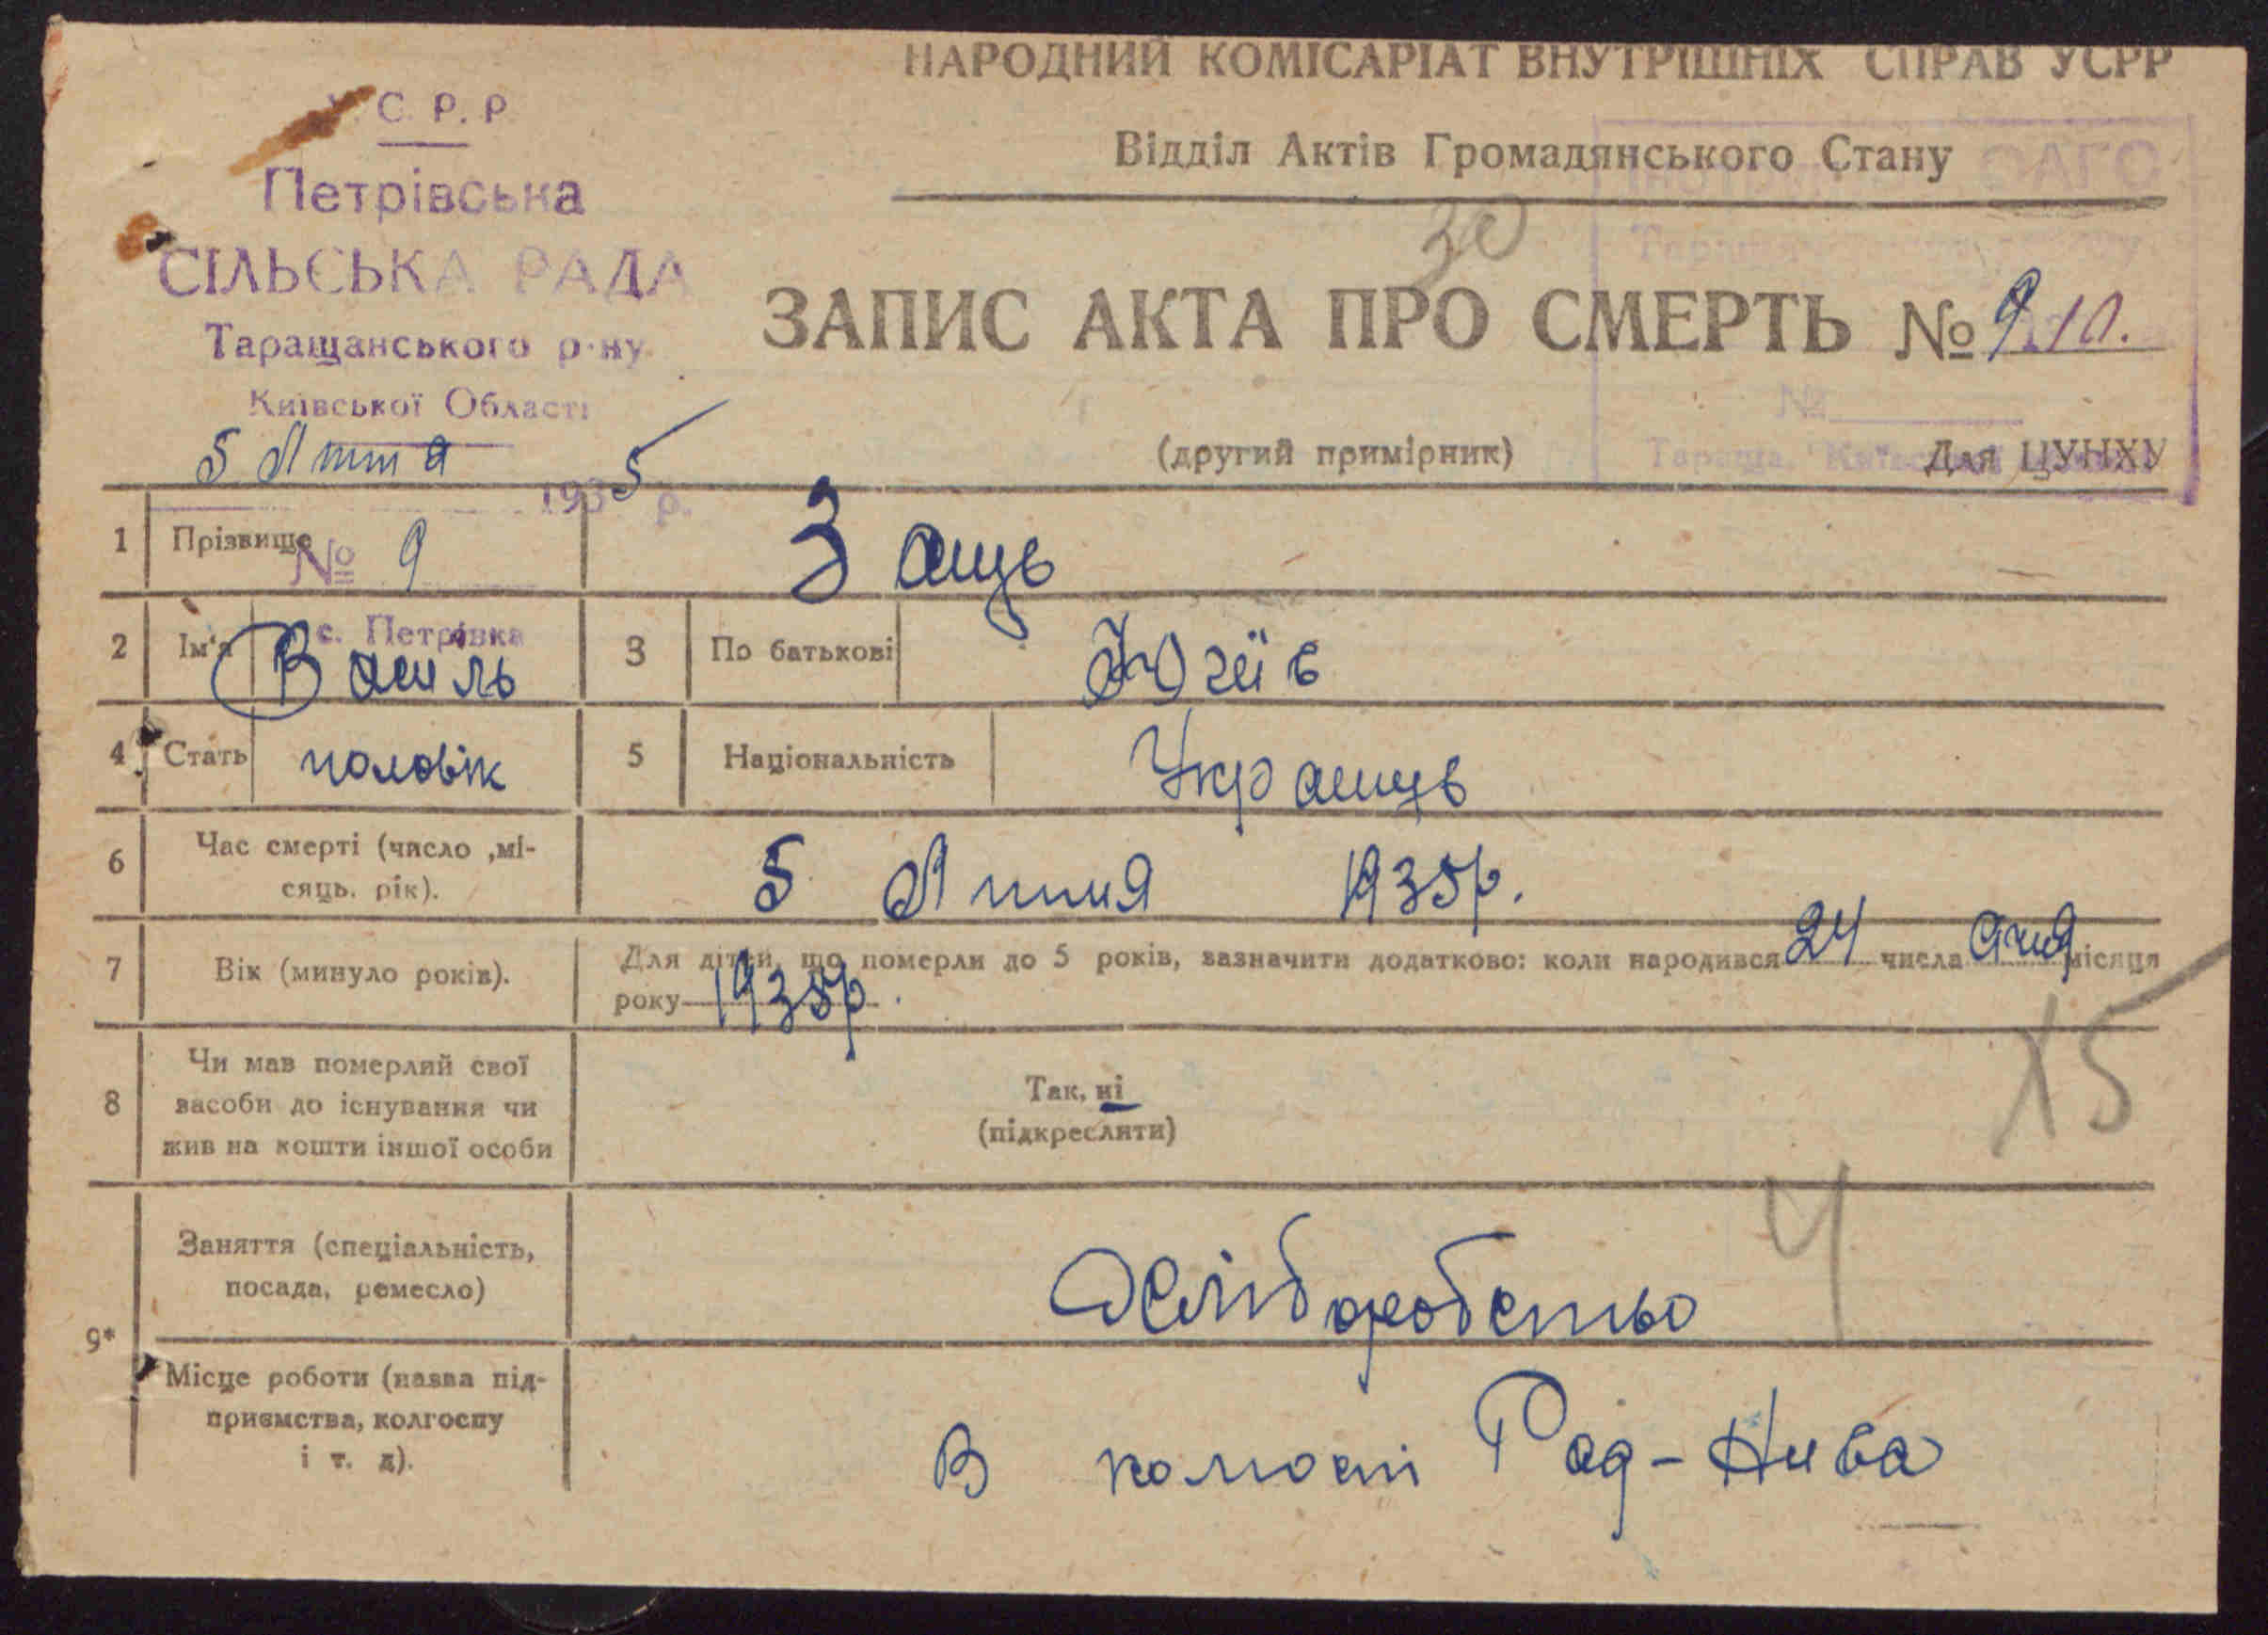 НАРОДНИЙ КОМІСАРІАТ ВНУТРІШНІХ СПРАВ УСРР
Відділ Актів Громадянського Стану
С. Р. Р.
Петрівська
СІЛЬСЬКА РАДА
Таращанського р-ну
Київської Області
5 1935 р.
№ 9
с. Петрівка
ОАГС
30
ЗАПИС АКТА ПРО СМЕРТЬ № 9.10.
№
(другий примірник)
Для ЦУНХУ
1 Прізвище Заиць
2 Ім'я Василь 3 По батькові
4 Стать чоловік 5 Національність Украинць
6 Час смерті (число, мі-
сяць, рік). 5 Липня 1935р.
7 Вік (минуло років). Для дітей, що померли до 5 років, зазначити додатково: коли народився 24 числа Січня місяця
року 1935р.
8 Чи мав померлий свої
засоби до існування чи
жив на кошти іншої особи
Так, ні
(підкреслити)
Х5
4
9* Заняття (спеціальність,
посада, ремесло) Хліборобство
Місце роботи (назва під-
приємства, колгоспу
і т. д).
В Рад-Нива